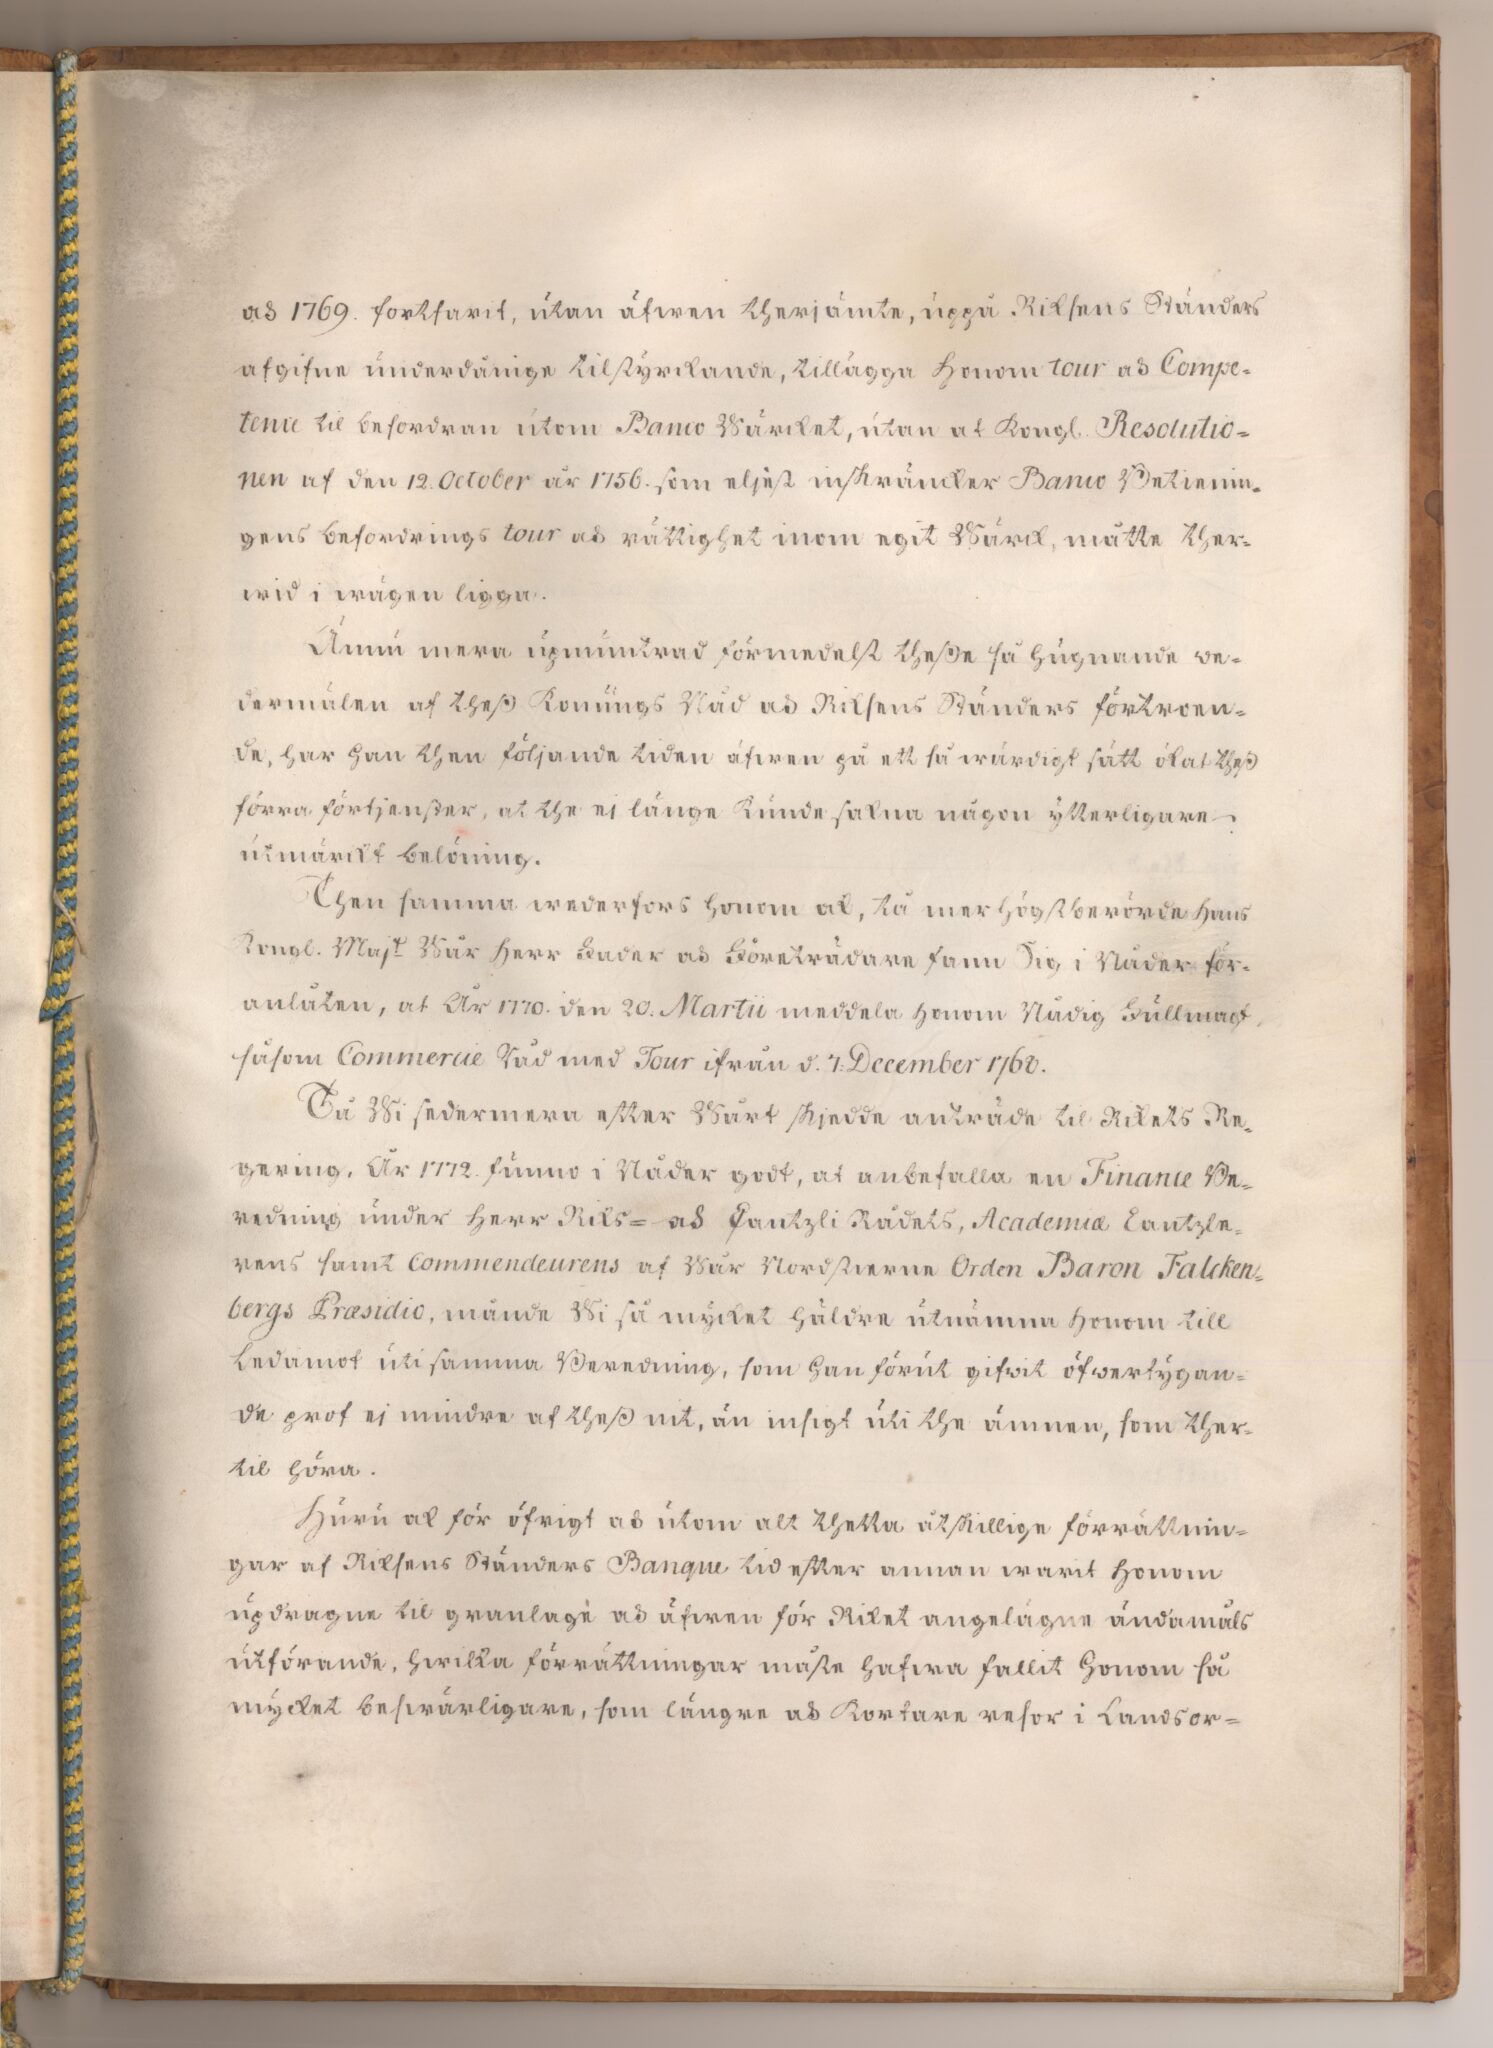 och 1769. fortfarit, utan äfwen therjämte, uppå Riksens Ständers
afgifne underdånige tilstyrckande, tillägga Honom tour och Compe-
tence til befordran utom Banco Wärcket, utan at Kongl. Resolutio-
nen af den 12. October år 1756. som eljest inskräncker Banco Betienin-
gens befordrings tour och rättighet inom egit Wärck, måtte ther-
wid i wägen ligga.
Ännu mera upmuntrad förmedelst thesse så hugnande we-
dermälen af thess Konungs Nåd och Riksens Ständers förtroen-
de, har han then följande tiden äfwen på ett så wärdigt sätt ökat thess
förra förtjenster, at the ej länge kunde sakna någon ytterligare
utmärckt belöning.
Then samma wederfors honom ock, tå merhögstberörde Hans
Kongl. Majt Wår Herr Fader och Företrädare fann Sig i Nåder för-
anlåten, at År 1770. den 20. Martii meddela Honom Nådig Fullmagt,
såsom Commercie Råd med Tour ifrån d. 7. December 1768.
Tå Wi sedermera efter Wårt skjedde anträde til Rikets Re-
gering, År 1772. funno i Nåder godt, at anbefalla en Finance Be-
redning under Herr Riks- och Cantzli Rådets, Academiæ Cantzle-
rens samt Commendeurens af Wår Nordstierne Orden Baron Falcken-
bergs Præsidio, månde Wi så mycket häldre utnämna Honom till
Ledamot uti samma Beredning, som han förut gifwit öfwertygan-
de prof ej mindre af thess nit, än insigt uti the ämnen, som ther-
til höra.
Huru ock för öfrigt och utom alt thetta åtskillige förrättnin-
gar af Riksens Ständers Banque tid efter annan warit Honom
updragne til granlage och äfwen för Riket angelägne ändamåls
utförande, hwilka förrättningar måste hafwa fallit Honom så
mycket beswärligare, som längre och kortare resor i Landsor-